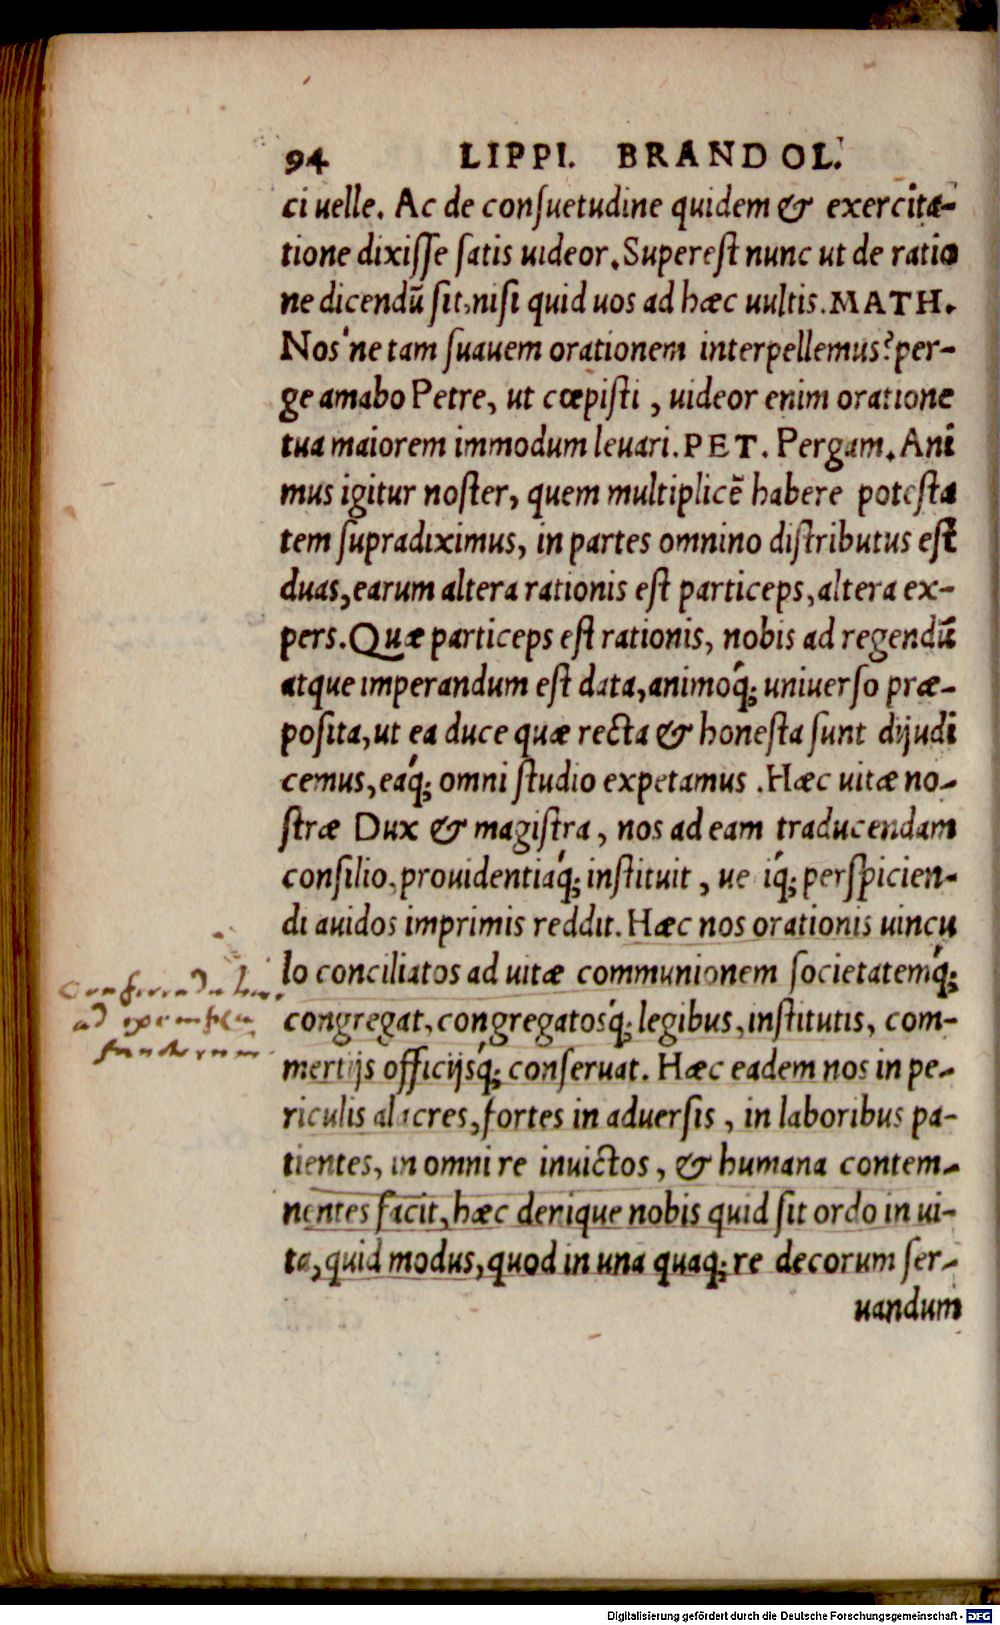 94 LIPPI. BRANDOL.
ci uelle. Ac de conſuetudine quidem & exercita-
tione dixiſſe ſatis uideor. Supereſt nunc ut de ratio
ne dicendū ſit, niſi quid uos ad hæc uultis. MATH.
Nos'ne tam ſuauem orationem interpellemus? per-
ge amabo Petre, ut cœpiſti, uideor enim oratione
tua maiorem immodum leuari. PET. Pergam. Ani
mus igitur noſter, quem multiplicē habere poteſta
tem ſupradiximus, in partes omnino diſtributus eſt
duas, earum altera rationis eſt particeps, altera ex-
pers. Quæ particeps eſt rationis, nobis ad regendū
atque imperandum eſt data, animoq́; uniuerſo præ-
poſita, ut ea duce quæ recta & honeſta ſunt dijudi
cemus, eaq́; omni ſtudio expetamus. Hæc uitæ no-
ſtræ Dux & magiſtra, nos ad eam traducendam
conſilio, prouidentiaq́; inſtituit, ue iq́; perſpicien-
di auidos imprimis reddit. Hæc nos orationis uincu
lo conciliatos ad uitæ communionem ſocietatemq́;
congregat, congregatosq́; legibus, inſtitutis, com-
mertijs officijsq́; conſeruat. Hæc eadem nos in pe-
riculis alacres, fortes in aduerſis, in laboribus pa-
tientes, in omni re inuictos, & humana contem-
nentes facit, hæc denique nobis quid ſit ordo in ui-
ta, quid modus, quod in una quaq; re decorum ſer-
uandum
ad exempla
Digitalisierung gefördert durch die Deutsche Forschungsgemeinschaft - DFG